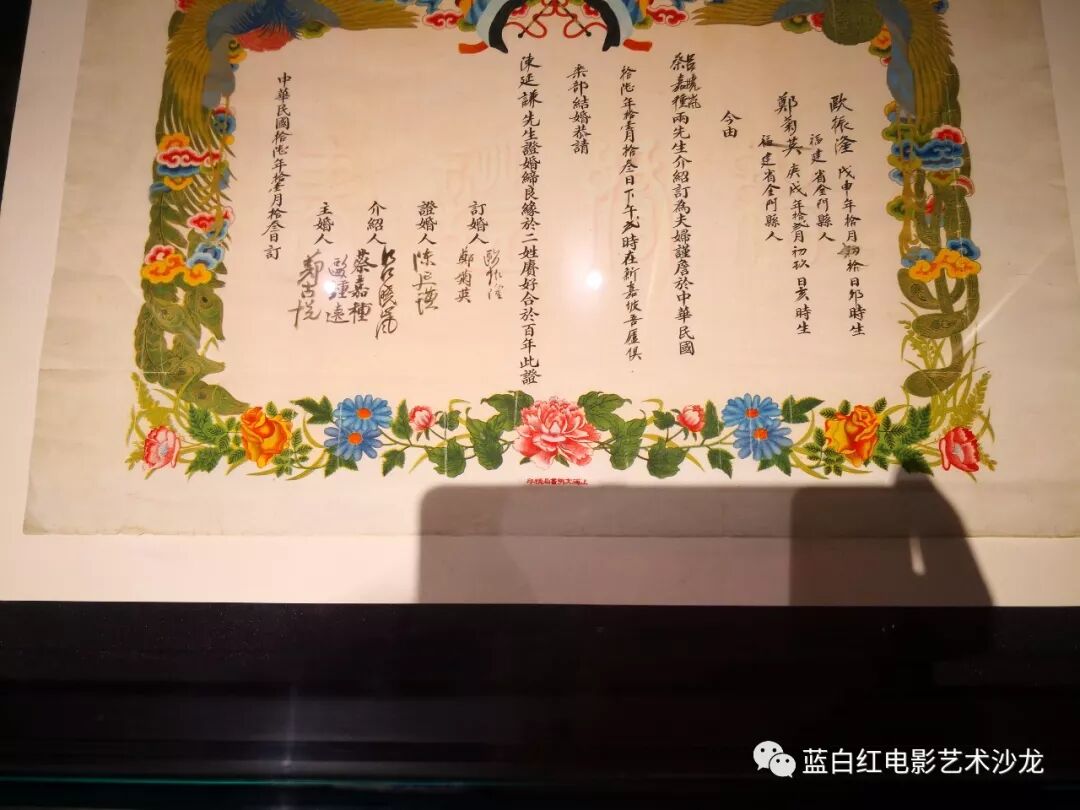 歐振滏 戊申年拾月初拾日卯時生
福建省金門縣人
鄭菊英 庚戌年拾弍月初玖日亥時生
福建省金門縣人
今由
呂曉嵐
蔡嘉種兩先生介紹訂為夫婦謹詹於中華民國
拾陸年拾壹月拾叁日下午弍時在新嘉坡吾廬俱
樂部結婚恭請
陳延謙先生證婚締良緣於二姓賡好合於百年此證
訂婚人
鄭菊英
證婚人 陳延謙
介紹人
蔡嘉種
主婚人
中華民國拾陸年拾壹月拾叁日訂
蓝白红电影艺术沙龙